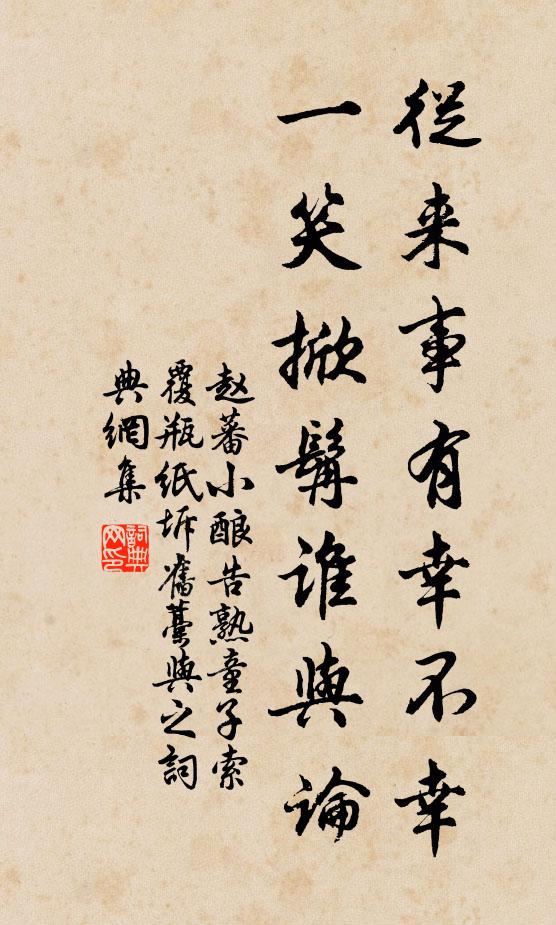 從来事有幸不幸
一笑掀髯誰與論
赵蕃小酿告熟童子索
覆瓶纸坼舊藁與之詞
典網集
詞典
网印